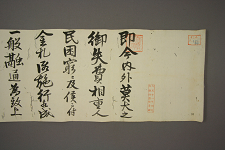 即今内外莫大之
御失費相重人
民困窮ニ及候ニ付
金札御施行
一般融通為致上